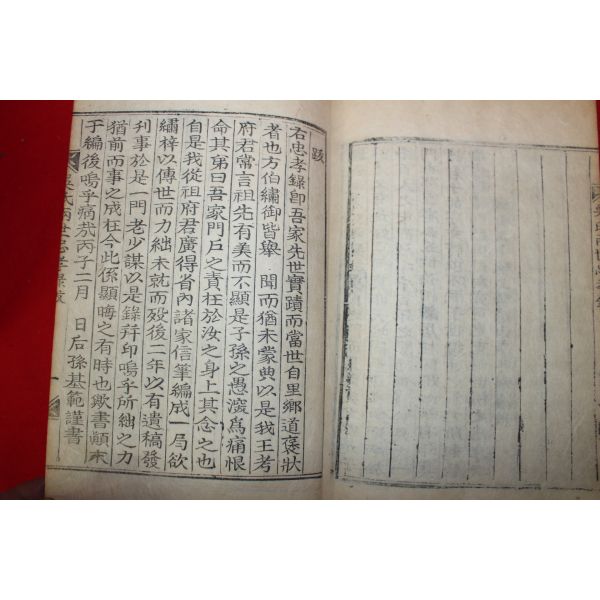 跋
右忠孝錄卽吾家先世實蹟而當世自里鄉道褒狀
者也方伯繡御皆擧 聞而猶未蒙典以是我王考
府君常言祖先有美而不顯是子孫之愚深爲痛恨
命其弟曰吾家門戶之責在於汝之身上其念之也
自是我從祖府君廣得省內諸家信筆編成一局欲
繡梓以傳世而力絀未就而歿後二年以有遺稿發
刊事於是一門老少謀以是錄幷印嗚乎所絀之力
猶前而事之成在今此係顯晦之有時也歟書顚末
于編後嗚乎痛哉丙子二月 日后孫基範謹書
吳氏兩世忠孝錄跋
一